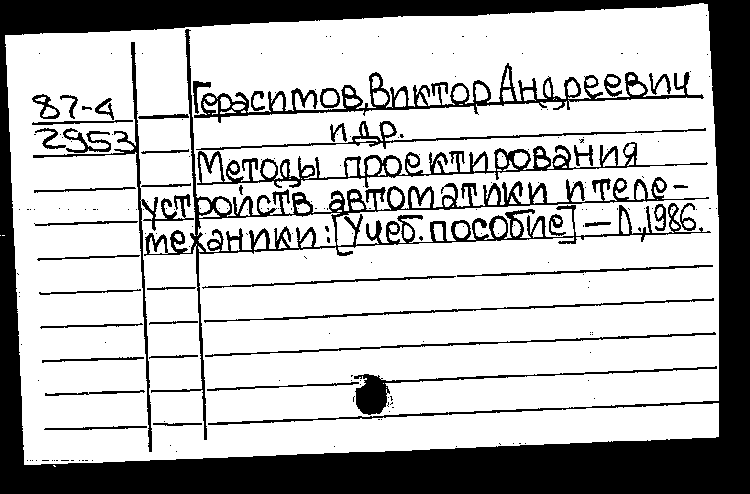 87-4
2953
Герасимов, Виктор Андреевич
и др.
Методы проектирования
устройств автоматики и теле-
механики: [Учеб. пособие]. — Л., 1986.